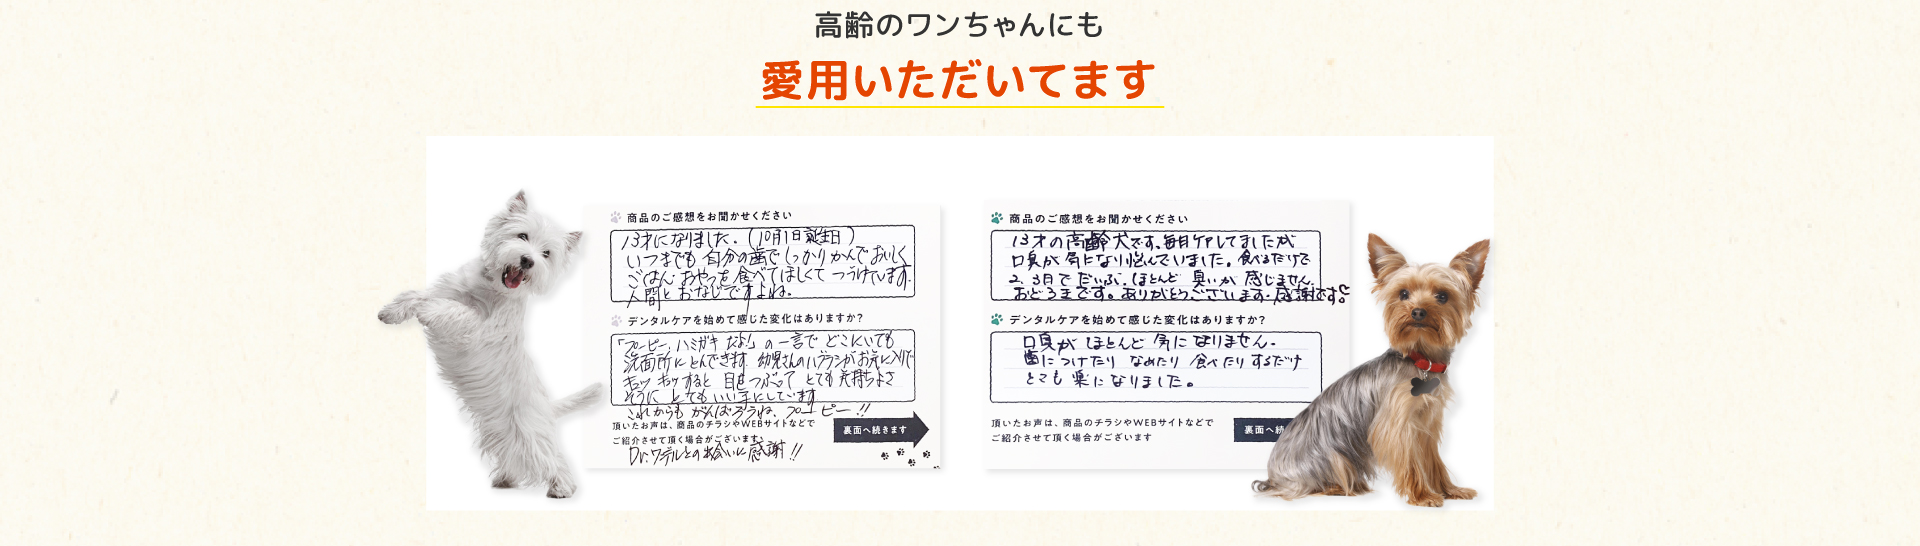 高齢のワンちゃんにも
愛用いただいてます
商品のご感想をお聞かせください
13才になりました。(10月1日誕生日)
いつまでも自分の歯でしっかりかんでおいしく
ごはん・おやつを食べてほしくてつづけています。
人間とおなじですよね。
デンタルケアを始めて感じた変化はありますか?
「プーピー、ハミガキだよ!」の一言でどこにいても
洗面所にとんできます。幼児さんのハブラシがお気に入りで
キュッキュッすると目をつぶってとても気持ちよさ
そうにとてもいい子にしています
これからもがんばろうね、プーピー!!
頂いたお声は、商品のチラシやWEBサイトなどで
ご紹介させて頂く場合がございます
裏面へ続きます
Dr.ワデルとの出会いに感謝!!
商品のご感想をお聞かせください
13才の高齢犬です、毎日ケアしてましたが
口臭が気になり悩んでいました。食べるだけで
2、3日でだいぶ、ほとんど臭いが感じません。
おどろきです。ありがとうございます。感謝です。
デンタルケアを始めて感じた変化はありますか?
口臭がほとんど気になりません。
歯につけたりなめたり食べたりするだけ
とても楽になりました。
頂いたお声は、商品のチラシやWEBサイトなどで
ご紹介させて頂く場合がございます
裏面へ続